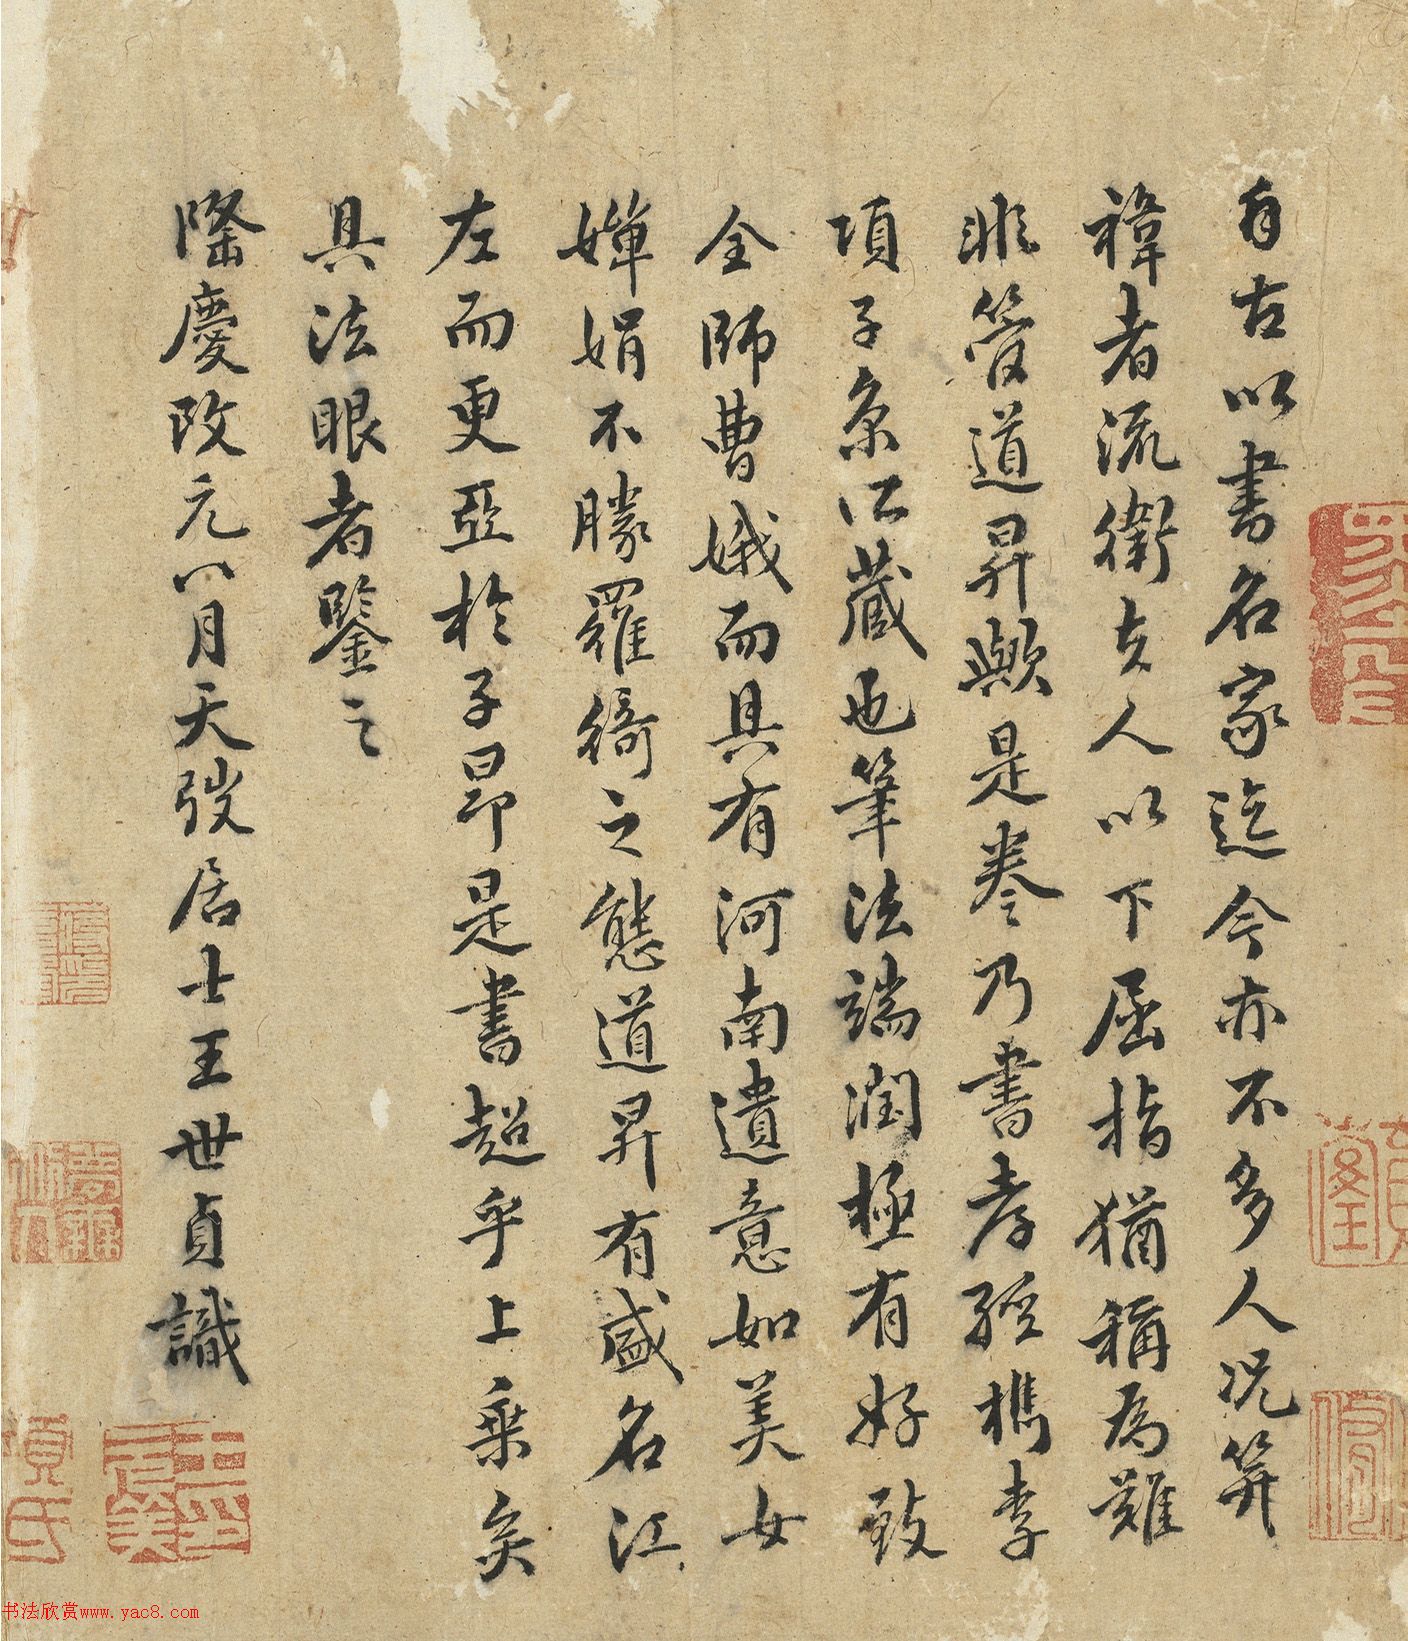 自古以書名家迄今亦不多人況笄
禕者流衛夫人以下屈指猶稱為難
非管道昇歟是卷乃書孝經檇李
項子京所藏也筆法端潤極有好致
全師曹娥而具有河南遺意如美女
嬋娟不勝羅綺之態道昇有盛名江
左而更亞於子昂是書超乎上乘矣
具法眼者鑒之
隆慶改元八月天弢居士王世貞識
王氏元美
項氏
书法欣赏www.yac8.com